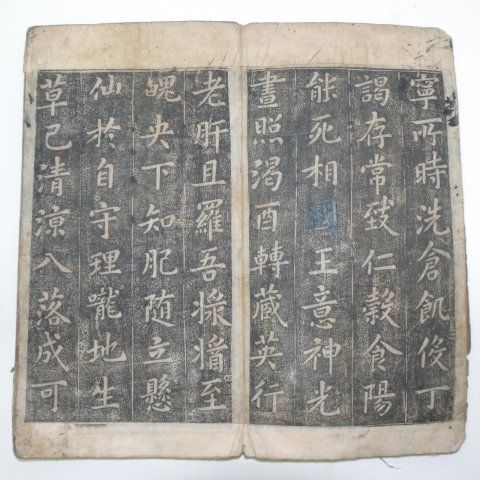 寧所時洗倉飢俊丁
謁存常仁穀食陽
能死相王意神光
晝照渴酉轉藏英行
老肝且羅吾至
央下知肥随立懸
仙於自守理嚨地生
草已清涼八落成可